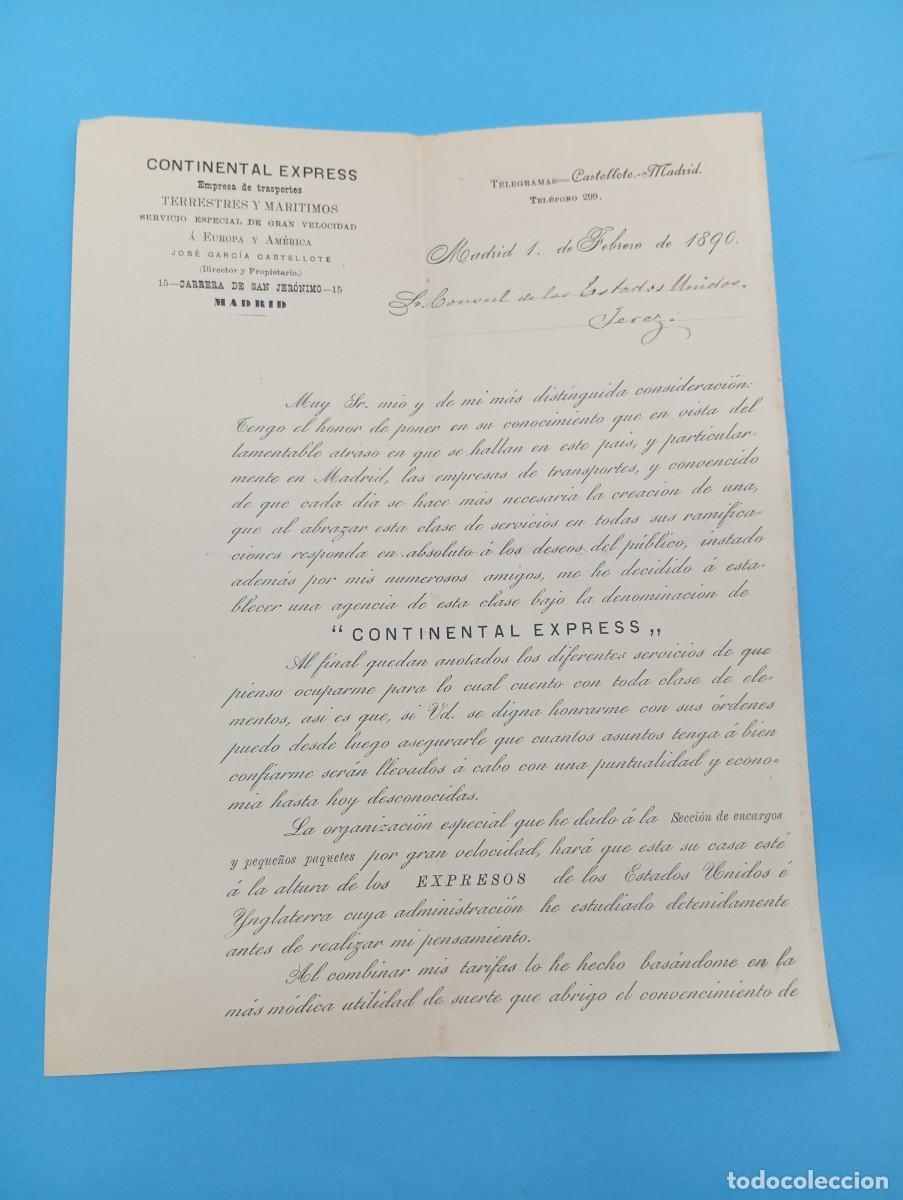 CONTINENTAL EXPRESS
Empresa de trasportes
TERRESTRES Y MARITIMOS
SERVICIO ESPECIAL DE GRAN VELOCIDAD
Á EUROPA Y AMÉRICA
JOSÉ GARCÍA CASTELLOTE
(Director y Propietario.)
15—CARRERA DE SAN JERÓNIMO—15
MADRID
TELEGRAMAS—Castellote.-Madrid.
TELÉFONO 299.
Madrid 1. de Febrero de 1890.
Sr. Consul de los Estados Unidos.
Jerez.
Muy Sr. mio y de mi más distinguida consideración:
Tengo el honor de poner en su conocimiento que en vista del
lamentable atraso en que se hallan en este pais, y particular-
mente en Madrid, las empresas de transportes, y convencido
de que cada dia se hace más necesaria la creacion de una,
que al abrazar esta clase de servicios en todas sus ramifica-
ciones responda en absoluto á los deseos del público, instado
además por mis numerosos amigos, me he decidido á esta-
blecer una agencia de esta clase bajo la denominacion de
“ CONTINENTAL EXPRESS „
Al final quedan anotados los diferentes servicios de que
pienso ocuparme para lo cual cuento con toda clase de ele-
mentos, asi es que, si Vd. se digna honrarme con sus órdenes
puedo desde luego asegurarle que cuantos asuntos tenga á bien
confiarme serán llevados á cabo con una puntualidad y econo-
mia hasta hoy desconocidas.
La organización especial que he dado á la Sección de encargos
y pequeños paquetes por gran velocidad, hará que esta su casa esté
á la altura de los EXPRESOS de los Estados Unidos é
Ynglaterra cuya administración he estudiado detenidamente
antes de realizar mi pensamiento.
Al combinar mis tarifas lo he hecho basándome en la
más módica utilidad de suerte que abrigo el convencimiento de
todocoleccion